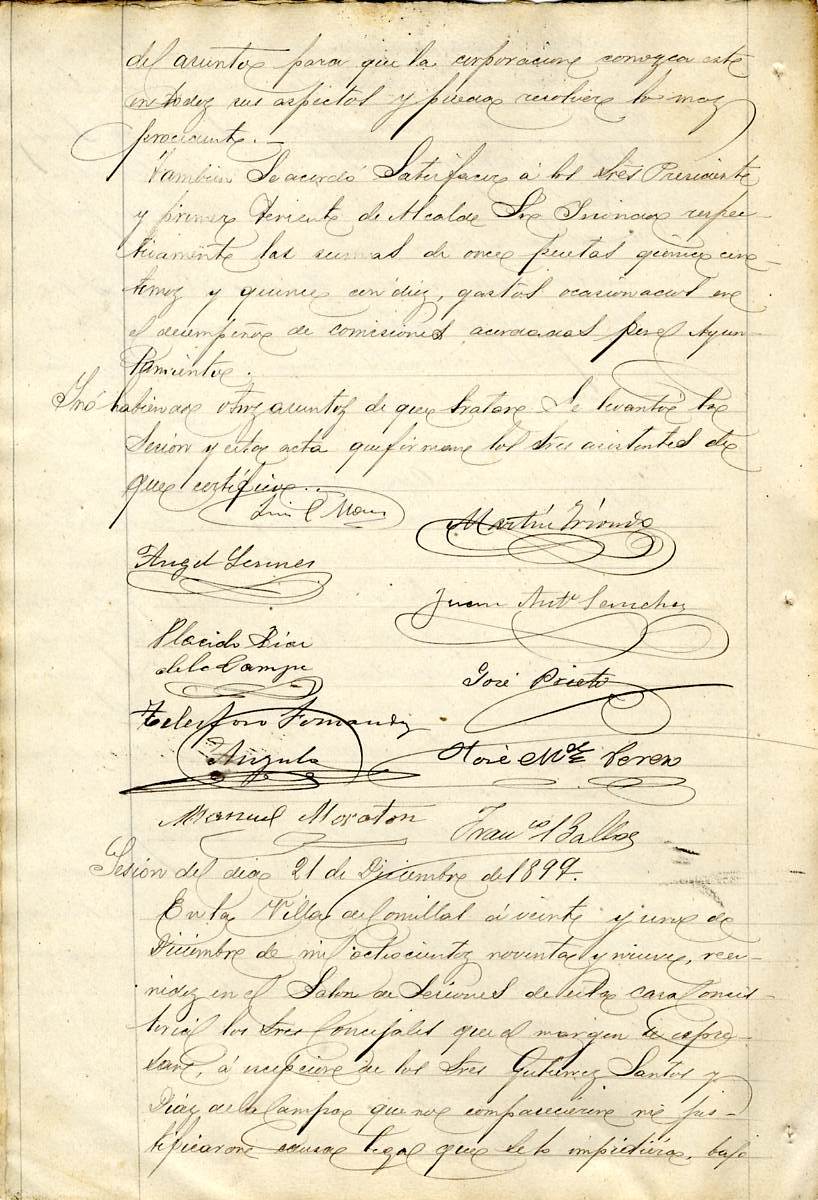 del asunto para que la corporacion conozca este
en todos sus aspectos y pueda resolver lo mas
procedente.—
Tambien Se acordó Satisfacer á los Sres Presidente
y primer teniente de Alcalde Sr Iriondo respec-
tivamente las sumas de once pesetas quince cen-
timos y quince con diez, gastos ocasionados en
el desempeño de comisiones acordadas por el Ayun-
tamiento.
Y no habiendo otros asuntos de que tratar Se levantó la
Sesion y esta acta que firman los Sres asistentes de
que certifico...
Martín Iriondo
Angel
Juan Antº Sanchez
Placido Diaz
de la Campa
José Prieto
Telesforo Fernandez
Angulo
José Mª
Manuel Moraton
Franco Balbas
Sesion del dia 21 de Diciembre de 1899.
En la Villa de Comillas á veinte y uno de
Diciembre de mil ochocientos noventa y nueve, reu-
nidos en el Salon de Sesiones de esta casa Consis-
torial los Sres Concejales que al margen se espre-
san, á escepcion de los Sres Gutierrez Santos y
Diaz de la Campa que no comparecieron ni jus-
tificaron causa legal que se lo impidiera, bajo